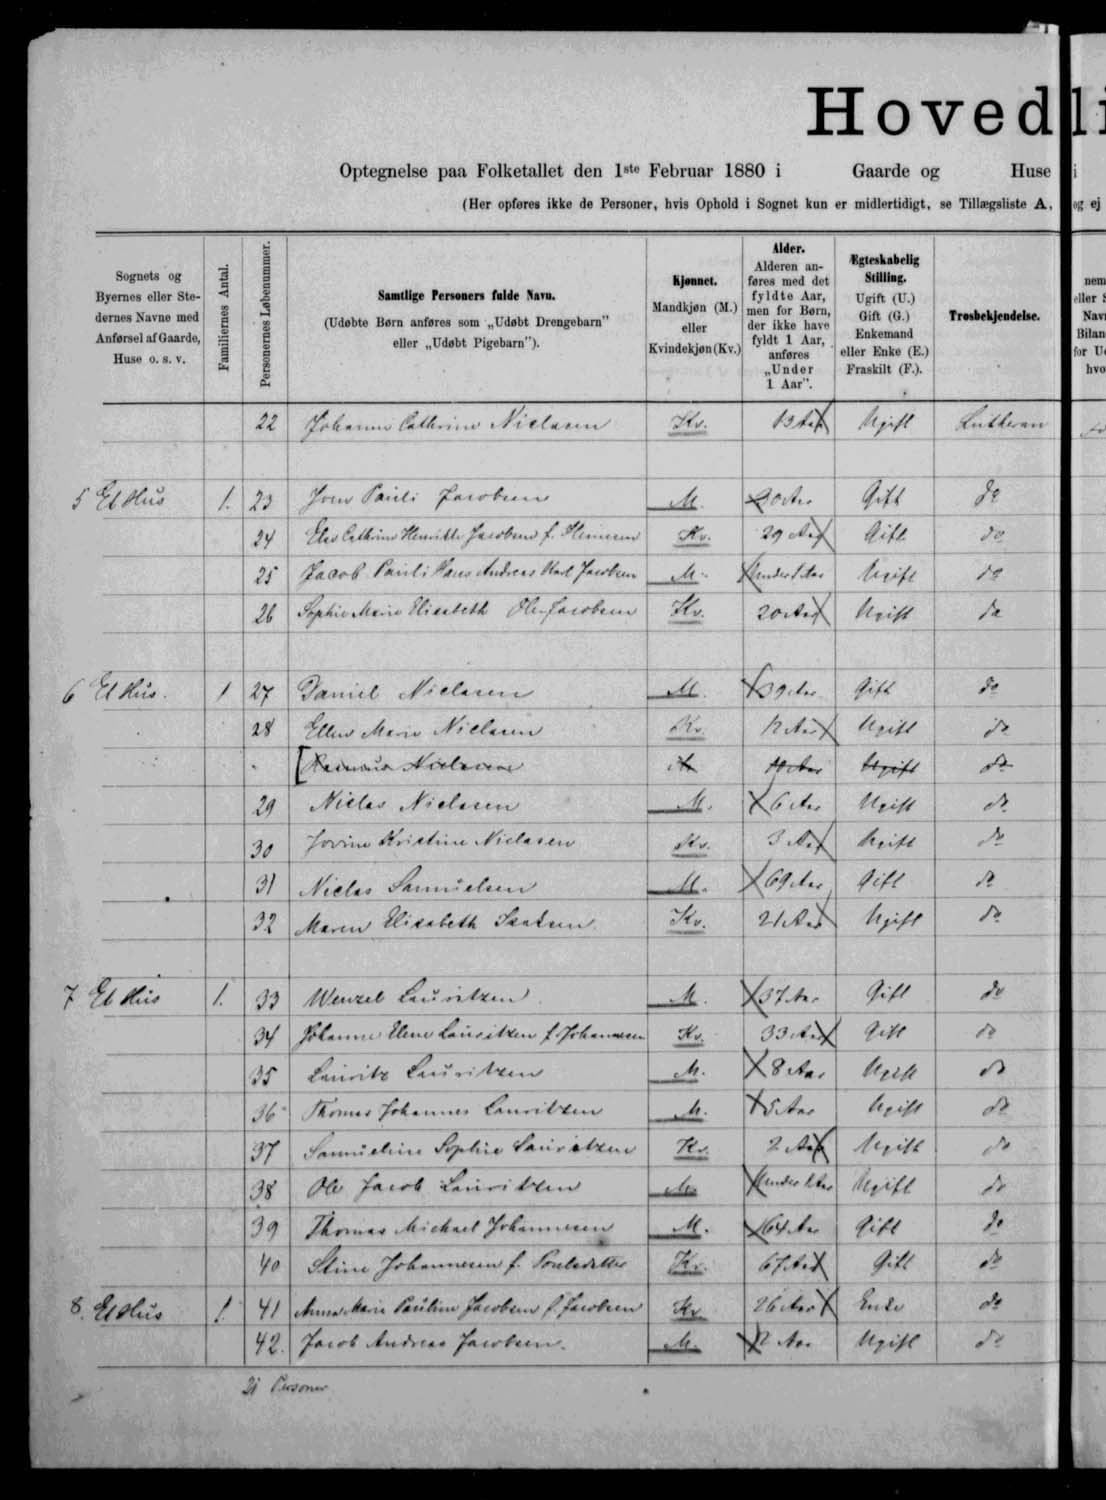 Hovedli
Optegnelse paa Folketallet den 1ste Februar 1880 i Gaarde og Huse i
(Her opføres ikke de Personer, hvis Ophold i Sognet kun er midlertidigt, se Tillægsliste A, og ej
Sognets og Byernes eller Stedernes Navne med Anførsel af Gaarde, Huse o. s. v.
Familiernes Antal.
Personernes Løbenummer.
Samtlige Personers fulde Navn.
(Udøbte Børn anføres som „Udøbt Drengebarn" eller „Udøbt Pigebarn").
Kjønnet.
Mandkjøn (M.) eller Kvindekjøn (Kv.)
Alder.
Alderen anføres med det fyldte Aar, men for Børn, der ikke have fyldt 1 Aar, anføres „Under 1 Aar".
Ægteskabelig Stilling.
Ugift (U.) Gift (G.) Enkemand eller Enke (E.) Fraskilt (F.).
Trosbekjendelse.
22 Johanne Cathrine Niclasen Kv. 13 Aar Ugift Lutheran
5 Et Hus 1. 23 Joen Pauli Jacobsen M. 30 Aar Gift do
24 Else Cathrine Henriette Jacobsen f. Kv. 29 Aar Gift do
25 Jacob Pauli Hans Andreas Karl Jacobsen M. Under 1 Aar Ugift do
26 Sophie Marie Elisabeth Ole-Jacobsen Kv. 20 Aar Ugift do
6 Et Hus. 1 27 Daniel Niclasen M. 39 Aar Gift do
28 Ellen Marie Niclasen Kv. 12 Aar Ugift do
Rasmus Niclasen M 10 Aar Ugift do
29 Niclas Niclasen M. 6 Aar Ugift do
30 Kristine Niclasen Kv. 3 Aar Ugift do
31 Niclas Samuelsen M. 69 Aar Gift do
32 Maren Elisabeth Kv. 21 Aar Ugift do
7 Et Hus 1. 33 Wenzel Lauritzen M. 37 Aar Gift do
34 Johanne Elene Lauritzen f. Johannesen Kv. 33 Aar Gift do
35 Lauritz Lauritzen M. 8 Aar Ugift do
36 Thomas Johannes Lauritzen M. 5 Aar Ugift do
37 Samueline Sophie Lauritzen Kv. 2 Aar Ugift do
38 Ole Jacob Lauritzen M. Under 1 Aar Ugift do
39 Thomas Michael Johannesen M. 64 Aar Gift do
40 Stine Johannesen f. Poulsdatter Kv. 67 Aar Gift do
8. Et Hus 1. 41 Anna Marie Pauline Jacobsen f. Jacobsen Kv 26 Aar Enke do
42. Jacob Andreas Jacobsen. M. 2 Aar Ugift do
21 Personer